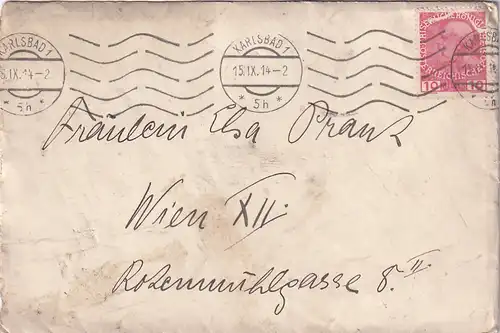 KARLSBAD 1
15.IX.14-2
* 5h *
KARLSBAD 1
15.IX.14-2
* 5h *
10 10
Fräulein Elsa Prank
Wien XII.
Rosenmühlgasse 8. II